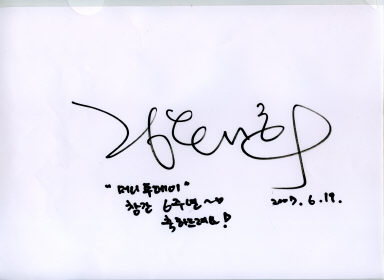 "머니투데이"
창간 6주년~♡
축하드려요!
2007. 6. 19.